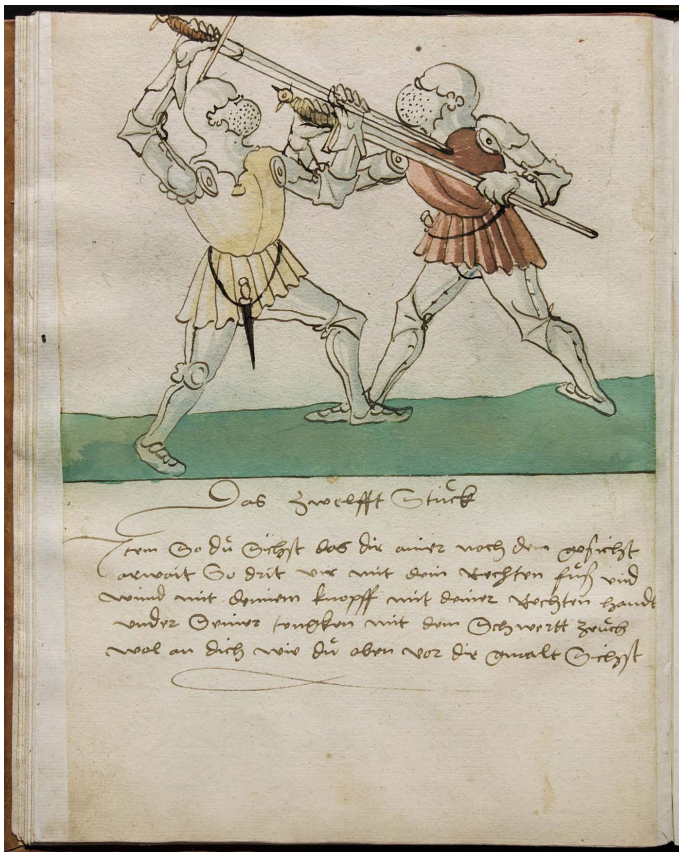 Das zwelfft Stuckh
Item So du Sichst das dir ainer nach dem gesicht
arwait So drit vir mit dein Rechten fuß vnd
wind mit deinem knopff mit deiner Rechten handt
vnder Seiner lengken mit dem Schwertt zeuch
wol an dich wie du oben vor dir gmalt Sichst